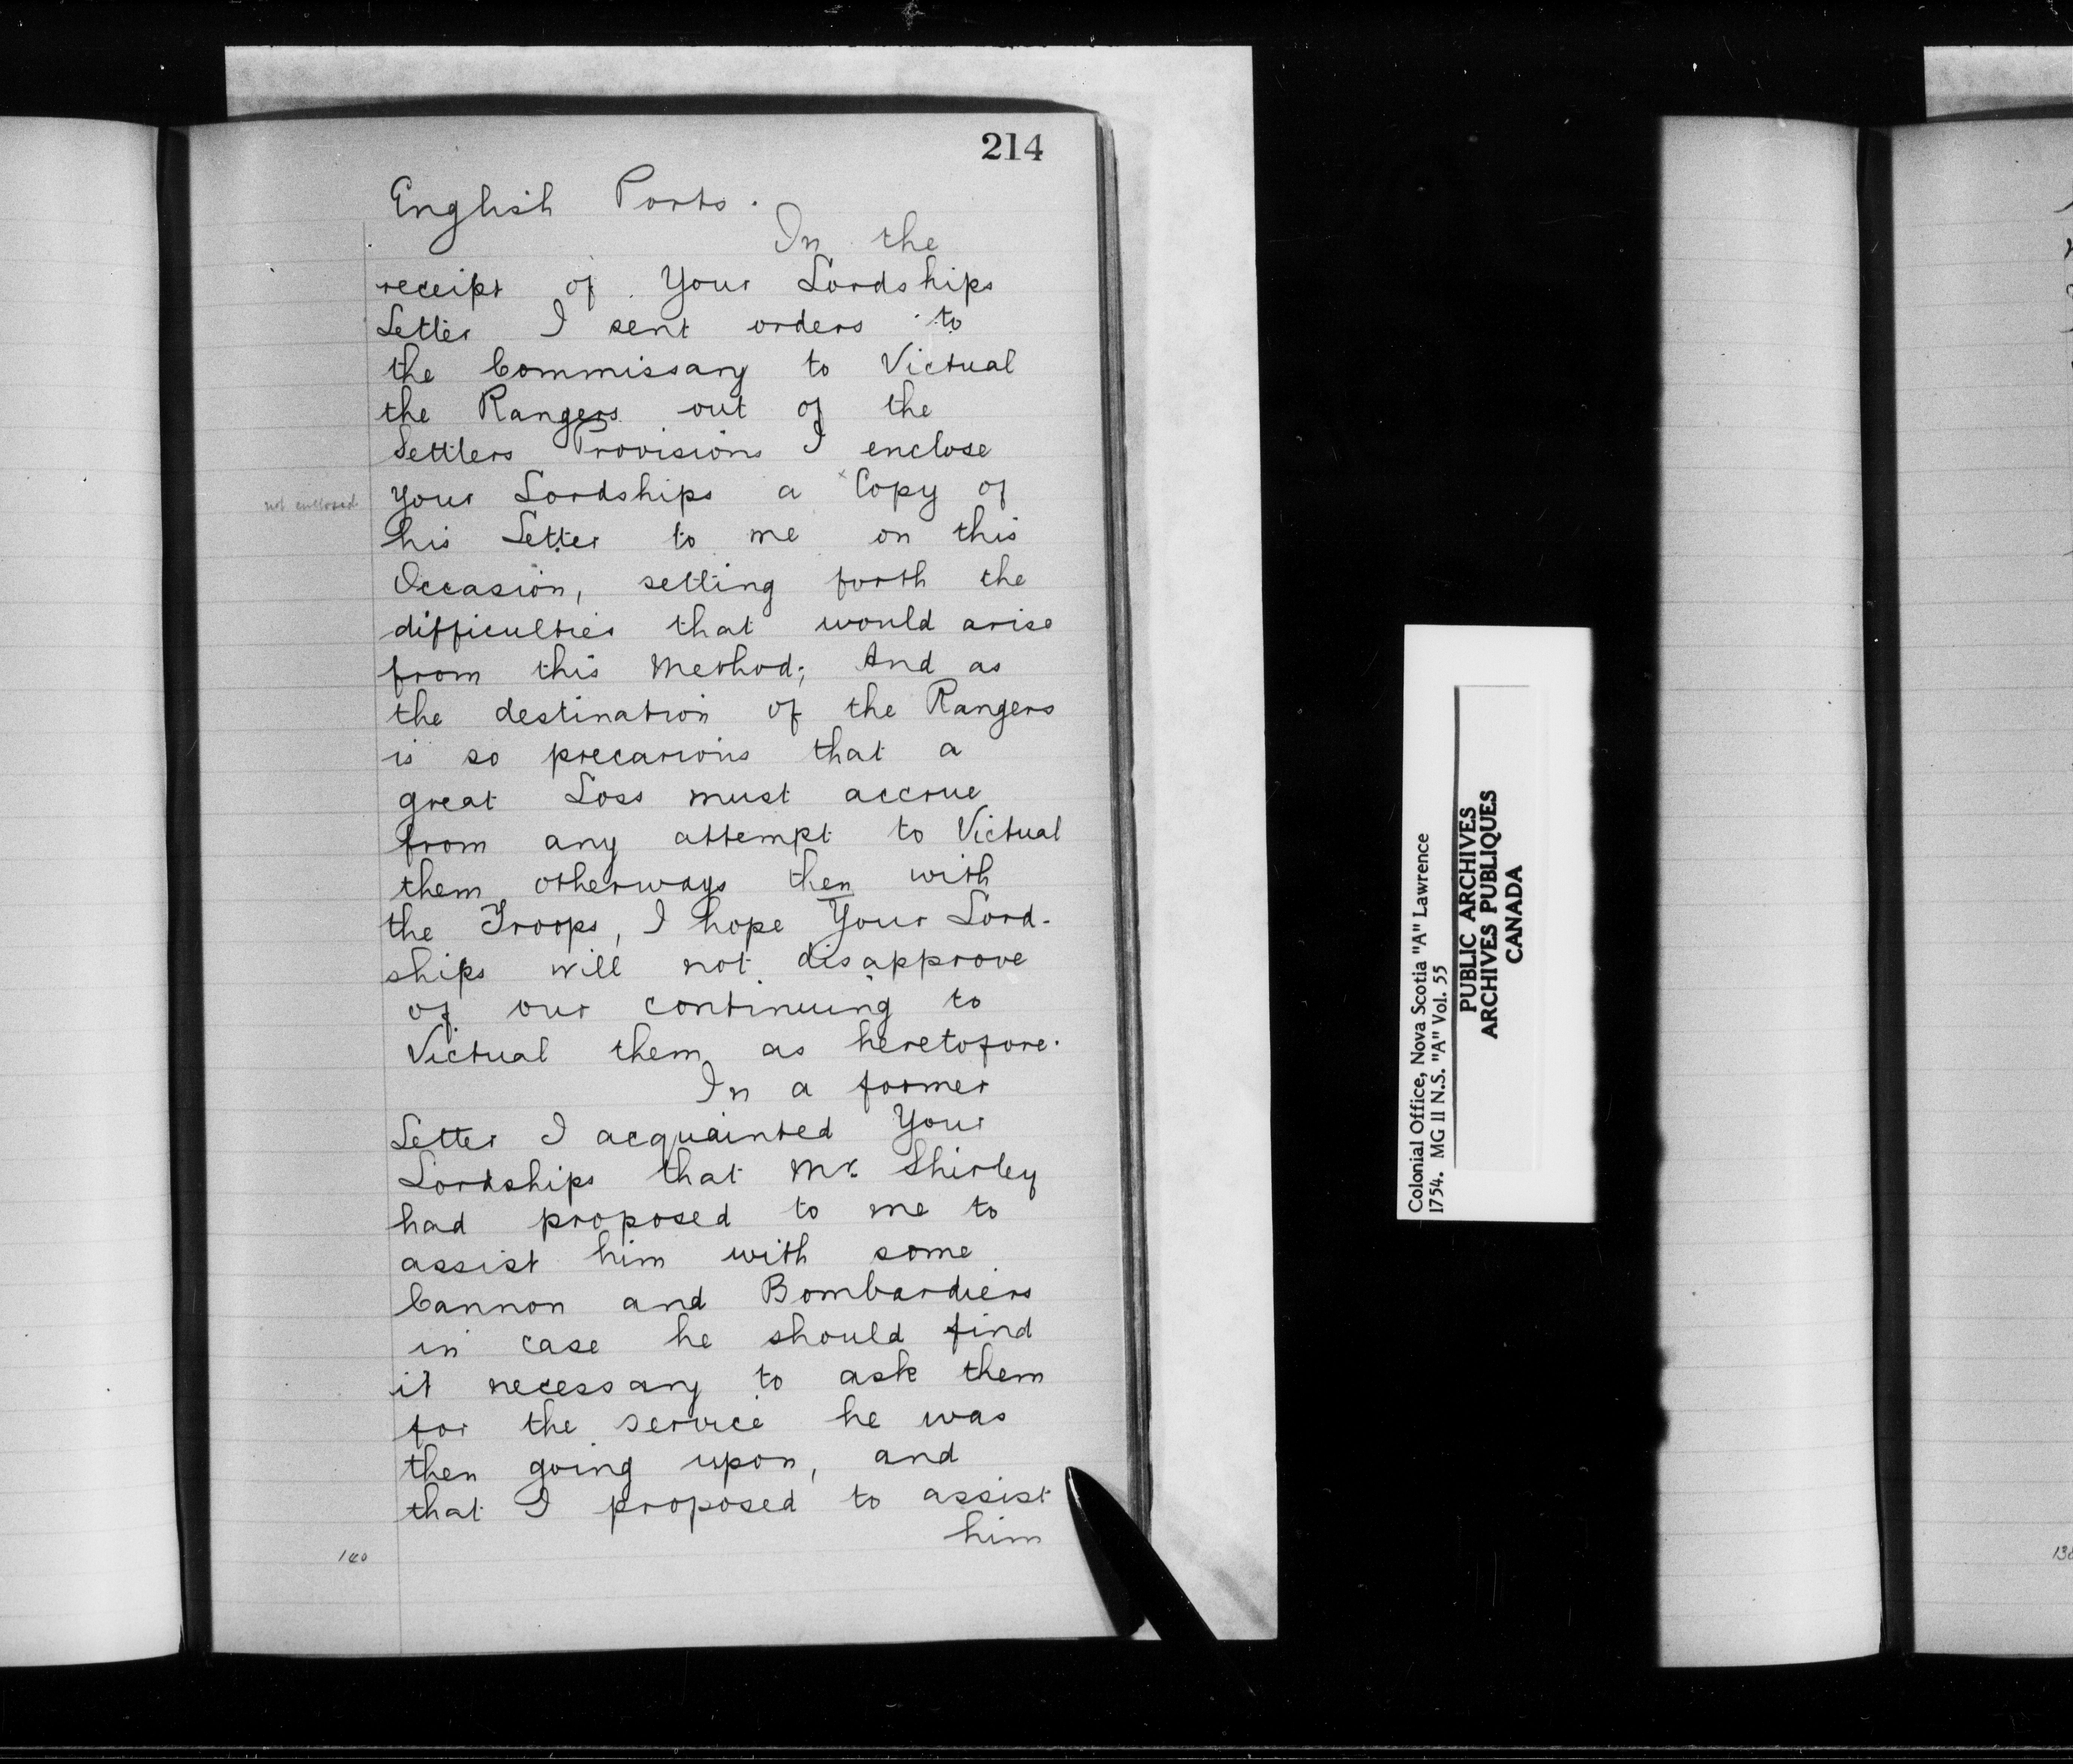 214
English Ports.
In the
receipt of Your Lordships
Letter I sent orders to
the Commissary to Victual
the Rangers out of the
Settlers Provisions I enclose
not enclosed
your Lordships a x Copy of
his Letter to me on this
Occasion, setting forth the
difficulties that would arise
from this Method; And as
the destination of the Rangers
is so precarious that a
great Loss must accrue
from any attempt to Victual
them otherways then with
the Troops, I hope Your Lord-
ships will not disapprove
of our continuing to
Victual them as heretofore.
In a former
Letter I acquainted Your
Lordships that Mr. Shirley
had proposed to me to
assist him with some
Cannon and Bombardiers
in case he should find
it necessary to ask them
for the service he was
then going upon, and
that I proposed to assist
him
Colonial Office, Nova Scotia "A" Lawrence
1754. MG 11 N.S. "A" Vol. 55
PUBLIC ARCHIVES
ARCHIVES PUBLIQUES
CANADA